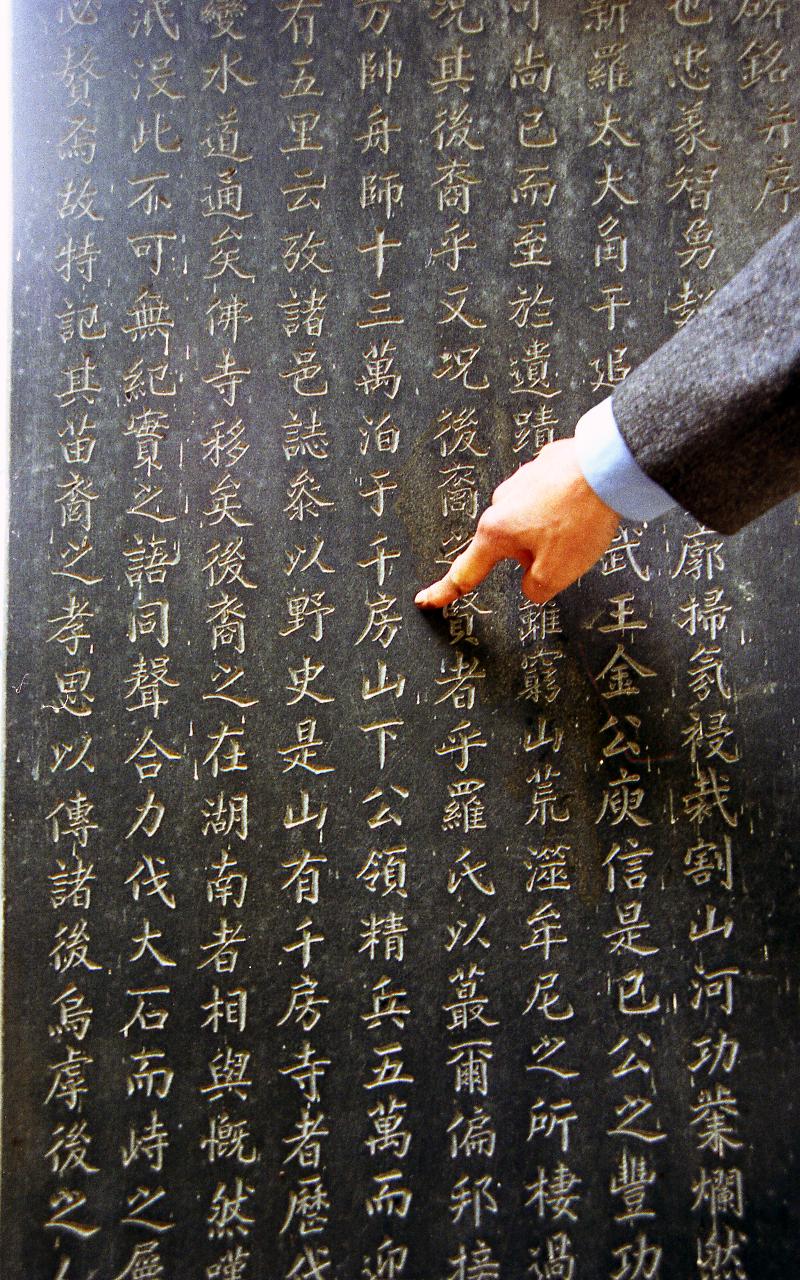 碑銘并序
也忠義智勇彭廓掃氛祲裁割山河功業爛然
新羅太大角干追武王金公庾信是已公之豐功
可尚已而至於遺蹟雖窮山荒澨牟尼之所棲過
况其後裔乎又况後裔之賢者乎羅氏以蕞爾偏邦接
方帥舟師十三萬泊于千房山下公領精兵五萬而迎
有五里云攷諸邑誌叅以野史是山有千房寺者歷代
變水道通矣佛寺移矣後裔之在湖南者相與慨然嘆
泯沒此不可無紀實之語同聲合力伐大石而峙之屬
必贅焉故特記其苗裔之孝思以傳諸後烏虖後之人